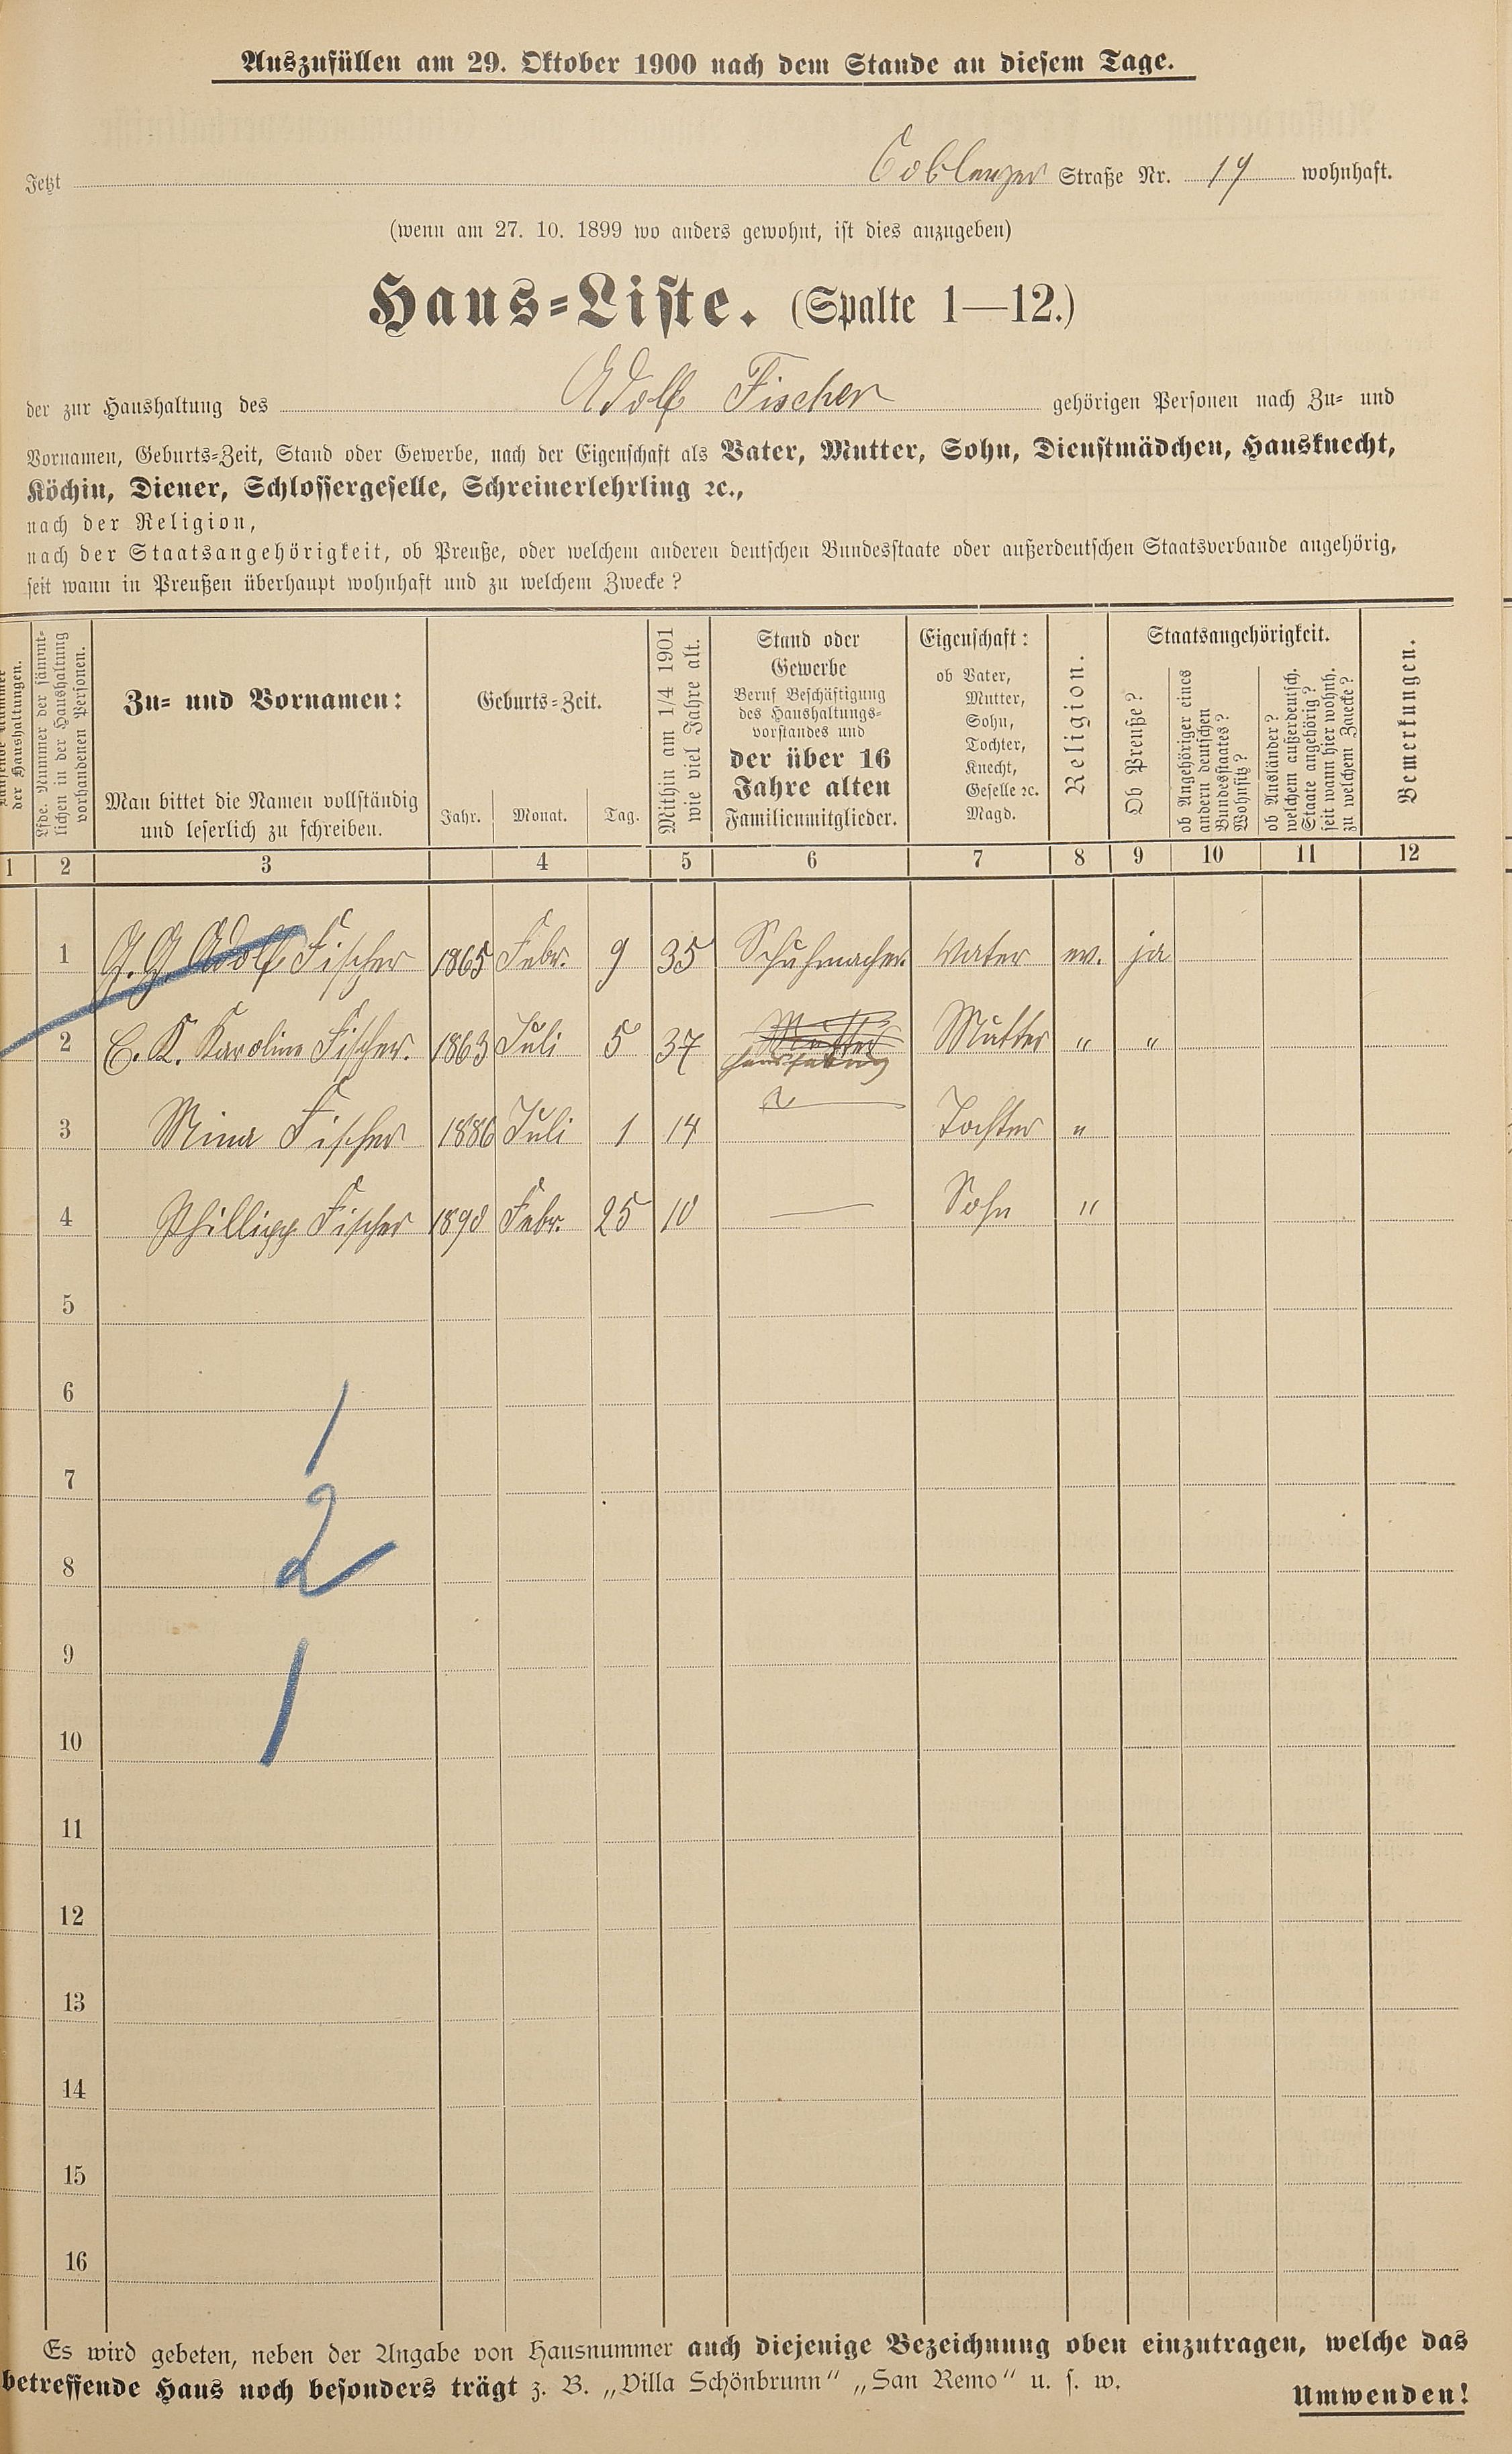 Auszufüllen am 29. Oktober 1900 nach dem Stande an diesem Tage.
Jetzt Coblenzer Straße Nr. 14 wohnhaft.
(wenn am 27. 10. 1899 wo anders gewohnt, ist dies anzugeben)
Haus-Liste. (Spalte 1—12.)
der zur Haushaltung des Adolf Fischer gehörigen Personen nach Zu- und
Vornamen, Geburts-Zeit, Stand oder Gewerbe, nach der Eigenschaft als Vater, Mutter, Sohn, Dienstmädchen, Hausknecht,
Köchin, Diener, Schlossergeselle, Schreinerlehrling ꝛc.,
nach der Religion,
nach der Staatsangehörigkeit, ob Preuße, oder welchem anderen deutschen Bundesstaate oder außerdeutschen Staatsverbande angehörig,
seit wann in Preußen überhaupt wohnhaft und zu welchem Zwecke?
der Haushaltungen.
Lfde. Nummer der sämmt-
lichen in der Haushaltung
vorhandenen Personen.
Zu- und Vornamen:
Man bittet die Namen vollständig
und leserlich zu schreiben.
Geburts-Zeit.
Jahr. Monat. Tag.
Mithin am 1/4 1901
wie viel Jahre alt.
Stand oder
Gewerbe
Beruf Beschäftigung
des Haushaltungs-
vorstandes und
der über 16
Jahre alten
Familienmitglieder.
Eigenschaft:
ob Vater,
Mutter,
Sohn,
Tochter,
Knecht,
Geselle ꝛc.
Magd.
Religion.
Staatsangehörigkeit.
Ob Preuße?
ob Angehöriger eines
andern deutschen
Bundesstaates?
Wohnsitz?
ob Ausländer?
welchem außerdeutsch.
Staate angehörig?
seit wann hier wohnh.
zu welchem Zwecke?
Bemerkungen.
1 2 3 4 5 6 7 8 9 10 11 12
1 G. G. Adolf Fischer 1865 Febr. 9 35 Schuhmacher Vater ev. ja
2 C. K. Karoline Fischer. 1863 Juli 5 37 Mutter Mutter " "
3 Mina Fischer 1886 Juli 1 14 Tochter "
4 Phillipp Fischer 1890 Febr. 25 10 — Sohn "
5
6
1
7
2
8
9
1
10
11
12
13
14
15
16
Es wird gebeten, neben der Angabe von Hausnummer auch diejenige Bezeichnung oben einzutragen, welche das
betreffende Haus noch besonders trägt z. B. „Villa Schönbrunn“ „San Remo“ u. s. w.
Umwenden!